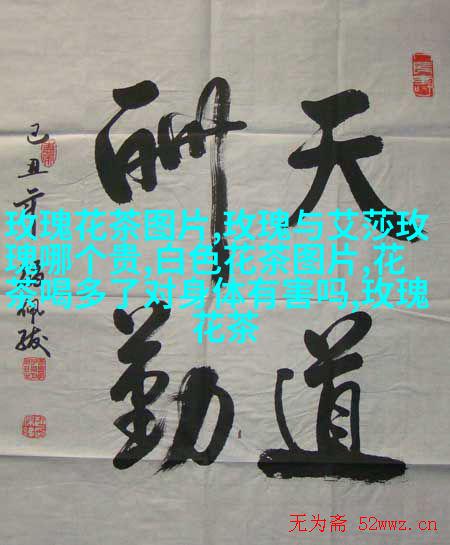 天道
酬勤
己丑
玫瑰花茶图片,玫瑰与艾莎玫
瑰哪个贵,白色花茶图片,花
茶喝多了对身体有害吗,玫瑰
花茶
无为斋 52wwz.cn